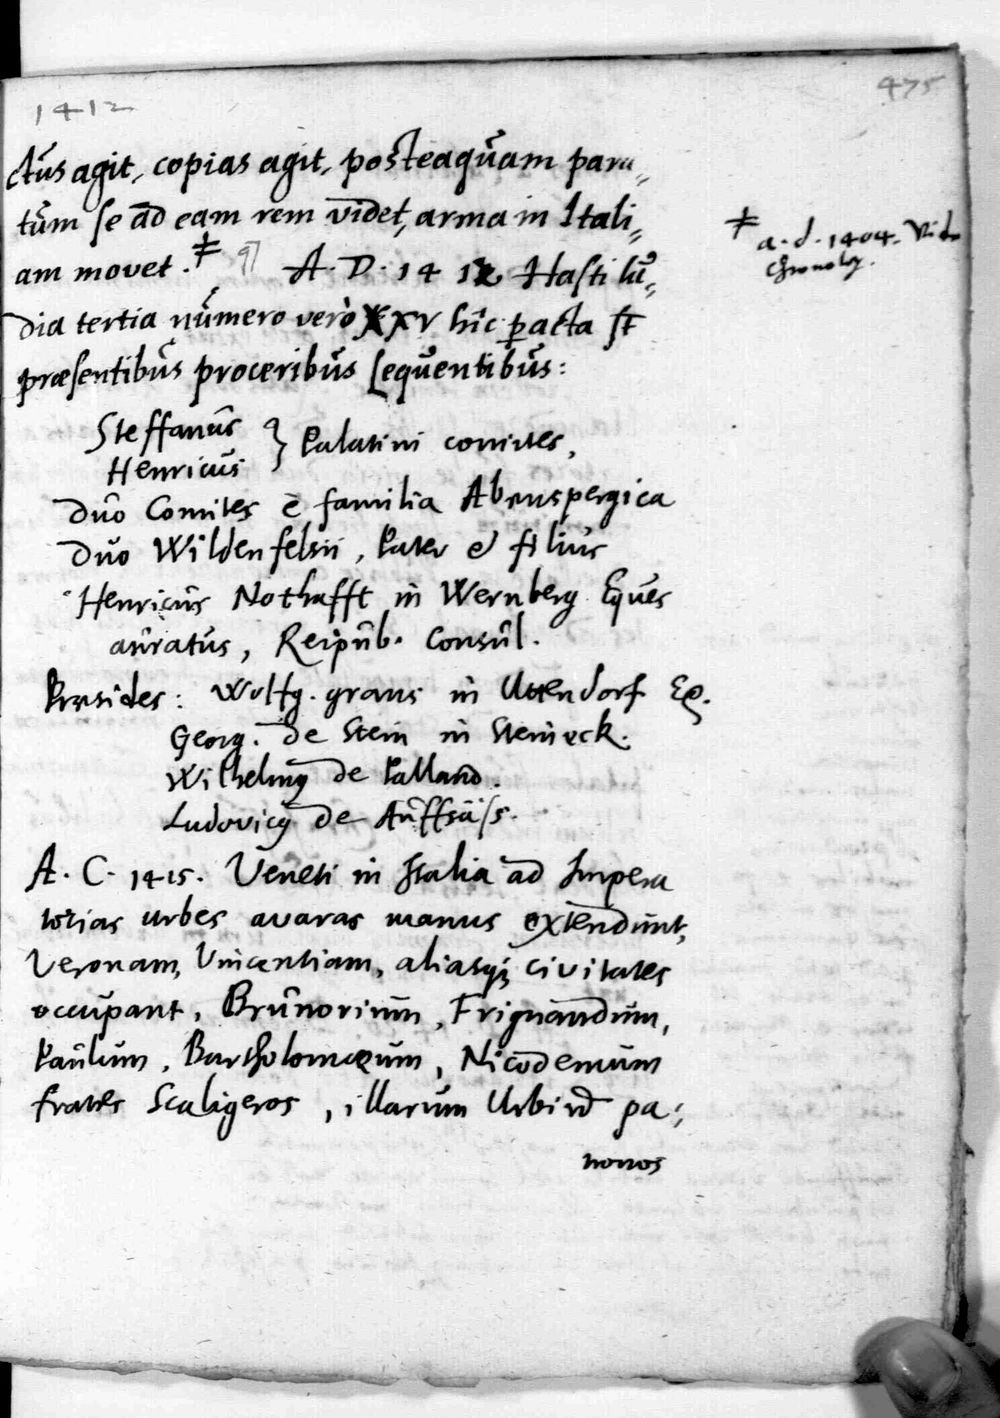 1412
475
ctus agit, copias agit, posteaquam para„
tum se ad eam rem videt, arma in Itali„
am movet. ‡ ¶ A. D. 1412 Hastilu„
dia tertia numero verò XXV hîc peracta st
præsentibus proceribus sequentibus:
‡ a. d. 1404. Vide
Chronolog.
Steffanus
Henricus } Palatini comites,
Duo Comites è familia Abenspergica
Duo Wildenfelsii, Pater & filius
Henricus Nothafft in Wernberg Eques
auratus, Reipub. Consul.
Præsides: Wolfg. grans in Uttendorf Eq.
Georg. de Stein in Steineck.
Wilhelmus de Palland.
Ludovicus de Auffsäss.
A. C. 1415. Veneti in Italia ad Impera
torias urbes avaras manus extendunt,
Veronam, Vincentiam, aliasq; civitates
occupant, Brunorium, Frignandum,
Paulum, Bartholomæum, Nicodemum
frates Scaligeros, illarum Urbium pa„
tronos